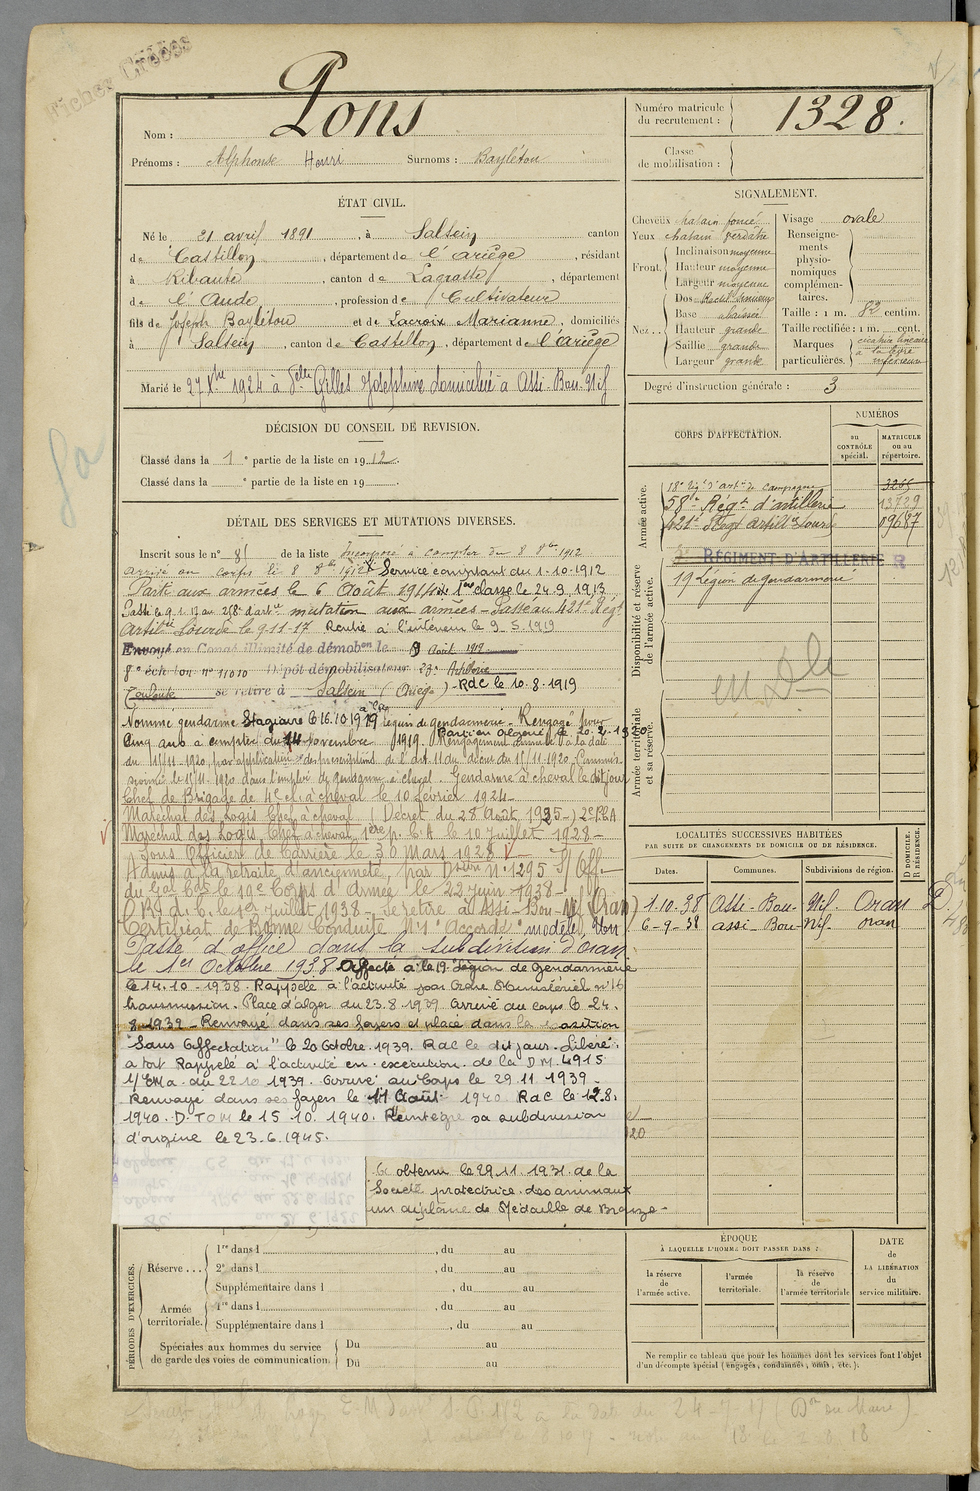 Fiches Créées
Nom : Pons
Prénoms : Alphonse Henri Surnoms : Baylétou
Numéro matricule du recrutement : 1328.
Classe de mobilisation :
ÉTAT CIVIL.
Né le 21 avril 1891, à Salsein canton
de Castillon, département de l'Ariège, résidant
à Ribaute, canton de Lagrasse, département
de l'Aude, profession de Cultivateur
fils de Joseph Baylétou et de Lacroix Marianne, domiciliés
à Salsein, canton de Castillon, département de l'Ariège
Marié le 27 Xbre 1924 à Delle Gilles Joséphine domiciliée à Assi-Bou-Nif
SIGNALEMENT.
Cheveux chatain foncé
Yeux chatain verdatre
Front. Inclinaison moyenne
Hauteur moyenne
Largeur moyenne
Nez.. Dos Rectil. sinueux
Base abaissée
Hauteur grande
Saillie grande
Largeur grande
Visage ovale
Renseignements physionomiques complémentaires.
Taille : 1 m. 82 centim.
Taille rectifiée : 1 m. cent.
Marques particulières. cicatrice linéaire à la lèvre inférieure
Degré d'instruction générale : 3
DÉCISION DU CONSEIL DE REVISION.
Classé dans la 1e partie de la liste en 1912.
Classé dans la e partie de la liste en 19
CORPS D'AFFECTATION.
NUMÉROS
au CONTRÔLE spécial.
MATRICULE ou au répertoire.
Armée active.
18e Régt d'artie de Campagne 3265
58e Régt d'artillerie 13729
421e Régt Artillie Lourde 09687
Disponibilité et réserve de l'armée active.
RÉGIMENT D'ARTILLERIE
19 Légion de gendarmerie
Armée territoriale et sa réserve.
DÉTAIL DES SERVICES ET MUTATIONS DIVERSES.
Inscrit sous le n° 81 de la liste Incorporé à compter du 8 8bre 1912
arrivé au corps le 8 8bre 1912 Service comptant du 1-10-1912
Parti aux armées le 6 Août 1914 1ère classe le 24.9.1913
Passé le 9.2.17 au 258e d'artie mutation aux armées - Passé au 421e Régt
Artillie Lourde le 9-11-17 Rentré à l'intérieur le 9.5.1919
Envoyé en Congé illimité de démobon le 9 Août 1919
8e échelon n° 11010 Dépôt démobilisateur 23e Artillerie
Toulouse se retire à Salsein (Ariège) - Rdc le 10.8.1919
Nommé gendarme Stagiaire le 16.10.1919 à la 19 légion de gendarmerie - Rengagé pour
cinq ans à compter du 14 novembre 1919. Passé en Algérie le 20.2.1920
Rengagement annulé à la date
du 15/11-1920 par application des prescriptions de l'art. 11 du décret du 15/11-1920 Commis-
sionné le 15/11-1920 dans l'emploi de gendarme à cheval. Gendarme à cheval le dit jour
Chef de Brigade de 4e cl. à cheval le 10 février 1924
Maréchal des Logis Chef à cheval (Décret du 28 Août 1925) 2e P.C.A
Maréchal des Logis Chef à cheval 1ère p. C.A le 10 juillet 1928 -
Sous Officier de Carrière le 30 Mars 1928
Admis à la retraite d'ancienneté, par Dson N° 1295 S/Off
du Gal Cdt le 19e Corps d'Armée le 22 juin 1938 -
ORS d. C. le 1er juillet 1938 - Se retire à Assi-Bou-Nif (Oran)
Certificat de Bonne Conduite N° 1 "Accordé" modèle Non
Passé d'office dans la subdivision d'Oran
le 1er Octobre 1938 Affecté à la 19 Légion de Gendarmerie
le 14-10-1938. Rappelé à l'activité par Ordre Ministériel n° 16
transmission. Place d'alger du 23.8.1939 arrivé au corps le 24.
8-1939 - Renvoyé dans ses foyers et placé dans la position
"Sans affectation" le 20 Octobre.1939. Rdc le dit jour. Libéré
a tort Rappelé à l'activité en exécution de la DM. 4915
1/EMA. du 22 10 1939. arrivé au Corps le 29 11 1939 -
Renvoyé dans ses foyers le 11 Août 1940 Rdc le 12.8.
1940. D.TOM le 15.10.1940. Réintègre sa subdivision
d'origine le 23.6.1945.
a obtenu le 29.11.1931. de la
Société protectrice des animaux
un diplôme de Médaille de Bronze -
LOCALITÉS SUCCESSIVES HABITÉES
PAR SUITE DE CHANGEMENTS DE DOMICILE OU DE RÉSIDENCE.
Dates. Communes. Subdivisions de région. D DOMICILE. R RÉSIDENCE.
1-10-38 Assi-Bou-Nif. Oran D.
6-9-38 assi-Bou-Nif. oran
PÉRIODES D'EXERCICES.
Réserve... 1re dans l , du au
2e dans l , du au
Supplémentaire dans l , du au
Armée territoriale. 1re dans l , du au
Supplémentaire dans l , du au
Spéciales aux hommes du service de garde des voies de communication. Du au
Du au
ÉPOQUE
À LAQUELLE L'HOMME DOIT PASSER DANS :
la réserve de l'armée active.
l'armée territoriale.
la réserve de l'armée territoriale
DATE de LA LIBÉRATION du service militaire.
Ne remplir ce tableau que pour les hommes dont les services font l'objet
d'un décompte spécial (engagés, condamnés, omis, etc.).